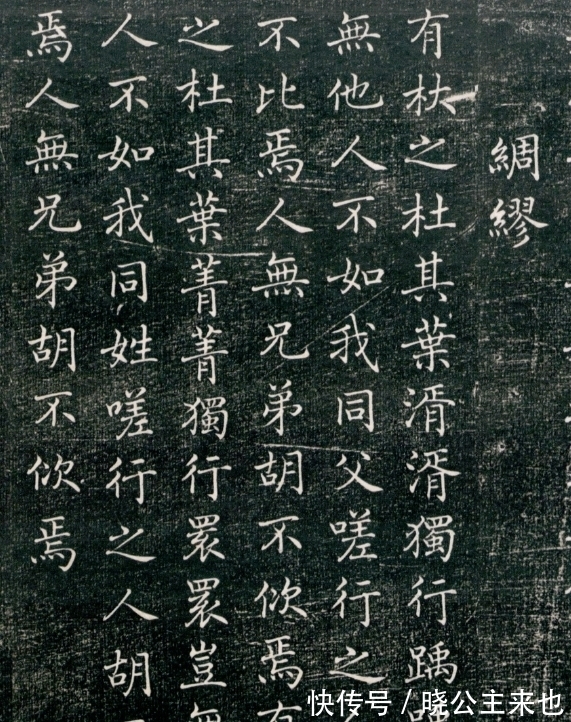 綢繆
有杕之杜其葉湑湑獨行踽
無他人不如我同父嗟行之
不比焉人無兄弟胡不佽焉有
之杜其葉菁菁獨行睘睘豈無
人不如我同姓嗟行之人胡
焉人無兄弟胡不佽焉
快传号/晓公主来也